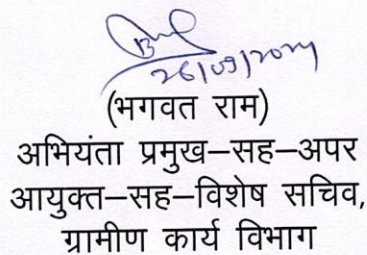 26/09/2024
(भगवत राम)
अभियंता प्रमुख–सह–अपर
आयुक्त–सह–विशेष सचिव,
ग्रामीण कार्य विभाग